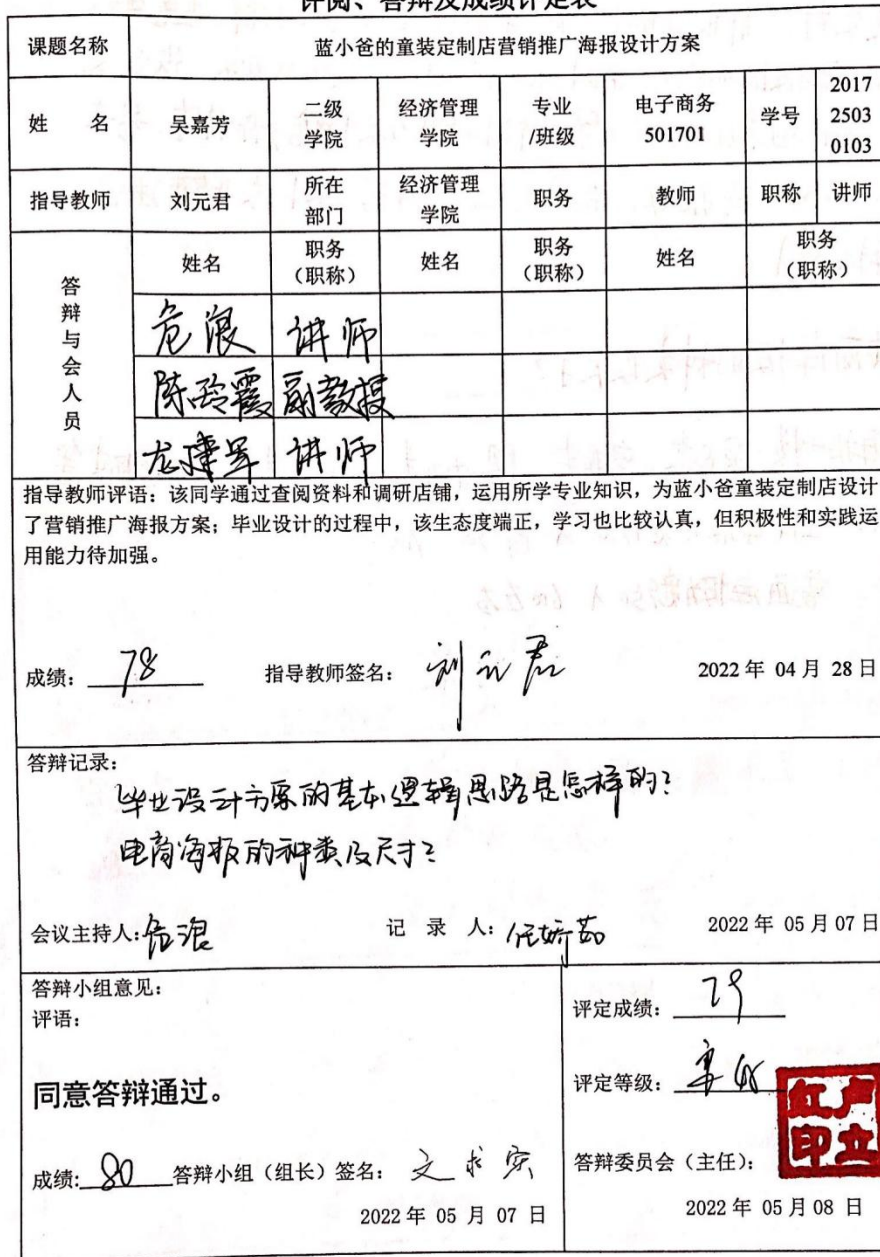 评阅、答辩及成绩评定表
课题名称 蓝小爸的童装定制店营销推广海报设计方案
姓 名 吴嘉芳 二级学院 经济管理学院 专业/班级 电子商务501701 学号 201725030103
指导教师 刘元君 所在部门 经济管理学院 职务 教师 职称 讲师
答辩与会人员 姓名 职务（职称） 姓名 职务（职称） 姓名 职务（职称）
危浪 讲师
陈玲霞 副教授
龙建军 讲师
指导教师评语：该同学通过查阅资料和调研店铺，运用所学专业知识，为蓝小爸童装定制店设计
了营销推广海报方案；毕业设计的过程中，该生态度端正，学习也比较认真，但积极性和实践运
用能力待加强。
成绩：78 指导教师签名：刘元君 2022年 04月 28日
答辩记录：
毕业设计方案的基本逻辑思路是怎样的？
电商海报的种类及尺寸？
会议主持人：危浪 记 录 人：任娇茹 2022年 05月07日
答辩小组意见：
评语：
同意答辩通过。
成绩：80 答辩小组（组长）签名：文求实
2022年 05 月 07 日
评定成绩：79
评定等级：
答辩委员会（主任）：
卢立红印
2022年 05月08 日